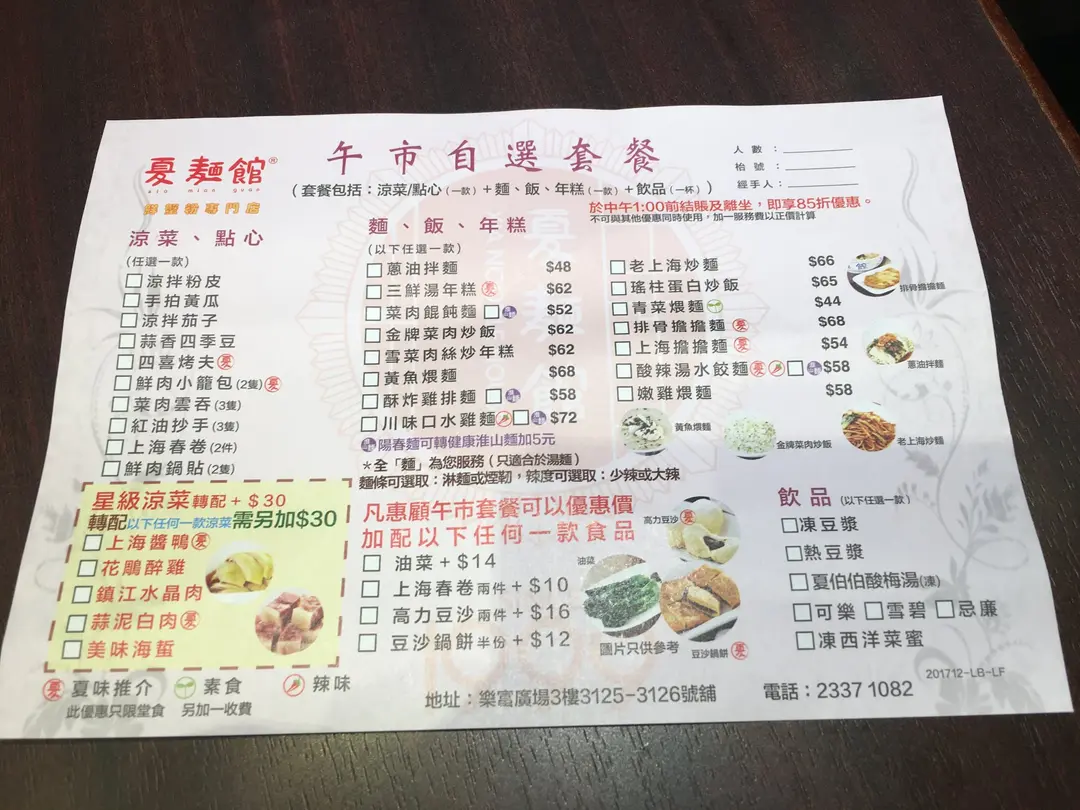 夏麵館®
xia mian guan
午市自選套餐
(套餐包括：涼菜/點心(一款)+麵、飯、年糕(一款)+飲品(一杯))
人數：
枱號：
經手人：
於中午1:00前結賬及離坐，即享85折優惠。
不可與其他優惠同時使用，加一服務費以正價計算
涼菜、點心
(任選一款)
涼拌粉皮
手拍黃瓜
涼拌茄子
蒜香四季豆
四喜烤夫
鮮肉小籠包(2隻)
菜肉雲吞(3隻)
紅油抄手(3隻)
上海春卷(2件)
鮮肉鍋貼(2隻)
麵、飯、年糕
(以下任選一款)
蔥油拌麵 $48
三鮮湯年糕 $62
菜肉餛飩麵 $52
金牌菜肉炒飯 $62
雪菜肉絲炒年糕 $62
黃魚煨麵 $68
酥炸雞排麵 $58
川味口水雞麵 $72
老上海炒麵 $66
瑤柱蛋白炒飯 $65
青菜煨麵 $44
排骨擔擔麵 $68
上海擔擔麵 $54
酸辣湯水餃麵 $58
嫩雞煨麵 $58
排骨擔擔麵
蔥油拌麵
黃魚煨麵
金牌菜肉炒飯
老上海炒麵
陽春麵可轉健康淮山麵加5元
*全「麵」為您服務(只適合於湯麵)
麵條可選取：淋麵或煙韌，辣度可選取：少辣或大辣
星級涼菜轉配+$30
轉配以下任何一款涼菜需另加$30
上海醬鴨
花鵰醉雞
鎮江水晶肉
蒜泥白肉
美味海蜇
凡惠顧午市套餐可以優惠價
加配以下任何一款食品
油菜+$14
上海春卷兩件+$10
高力豆沙兩件+$16
豆沙鍋餅半份+$12
高力豆沙
油菜
圖片只供參考
豆沙鍋餅
飲品(以下任選一款)
凍豆漿
熱豆漿
夏伯伯酸梅湯(凍)
可樂 雪碧 忌廉
凍西洋菜蜜
夏味推介 素食 辣味
此優惠只限堂食 另加一收費
地址：樂富廣場3樓3125-3126號舖
電話：2337 1082
201712-LB-LF